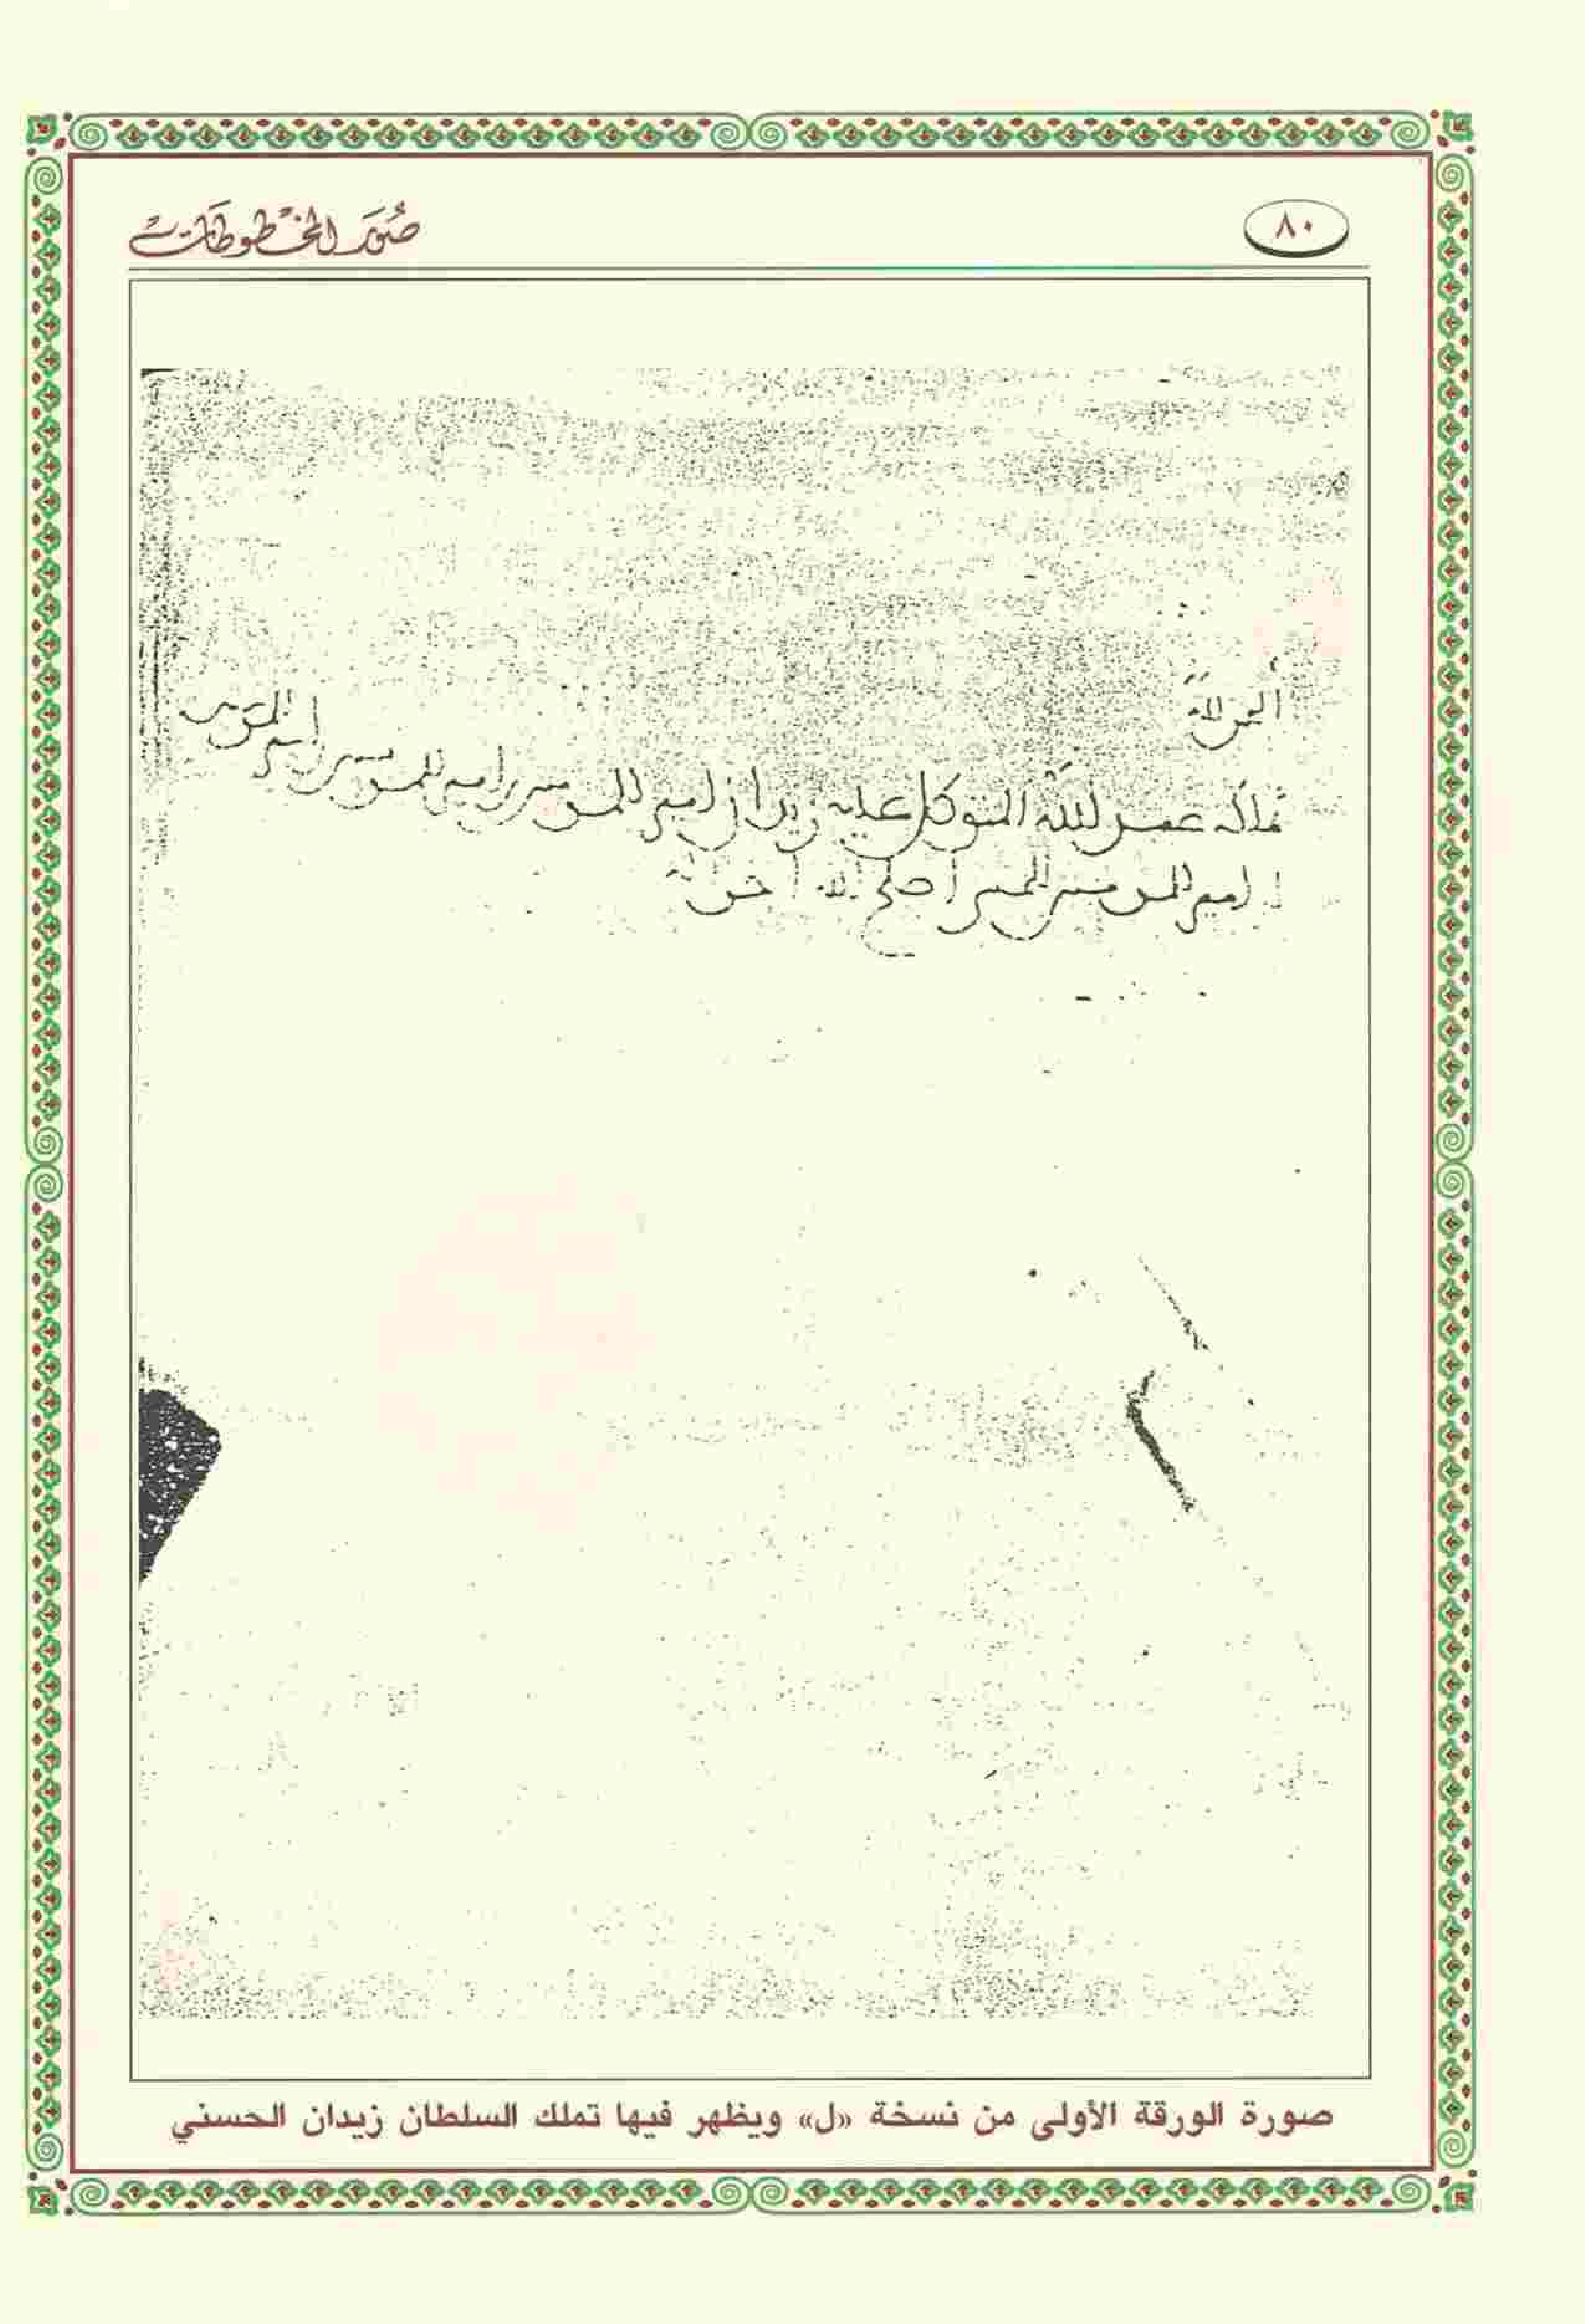 ٨٠
صُوَر المخطُوطَات
الحمد لله
تملكه عبد الله المتوكل عليه زيدان امير المومنين بن امير المومنين بن امير المومنين
بن امير المومنين الحسني اصلح الله احواله
صورة الورقة الأولى من نسخة «ل» ويظهر فيها تملك السلطان زيدان الحسني